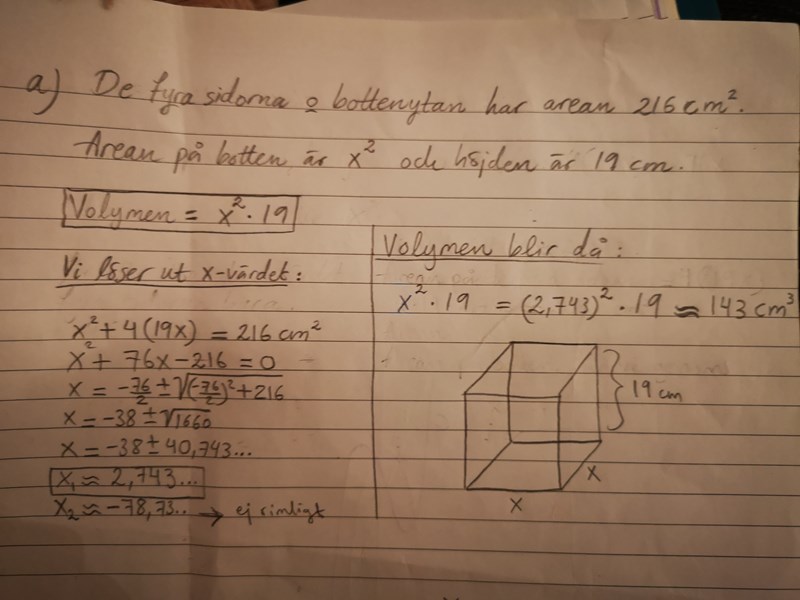 a) De fyra sidorna o bottenytan har arean 216 cm².
Arean på botten är x² och höjden är 19 cm.
Volymen = x² · 19
Vi löser ut x-värdet:
x² + 4(19x) = 216 cm²
x² + 76x - 216 = 0
x = -76/2 ± √((-76/2)² + 216)
x = -38 ± √1660
x = -38 ± 40,743...
x₁ ≈ 2,743...
x₂ ≈ -78,73.. → ej rimligt
Volymen blir då:
x² · 19 = (2,743)² · 19 ≈ 143 cm³
19 cm
x
x